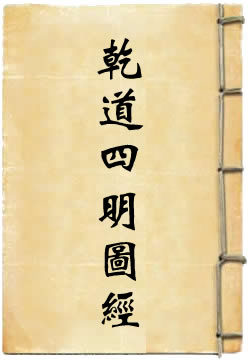 乾道四明圖經